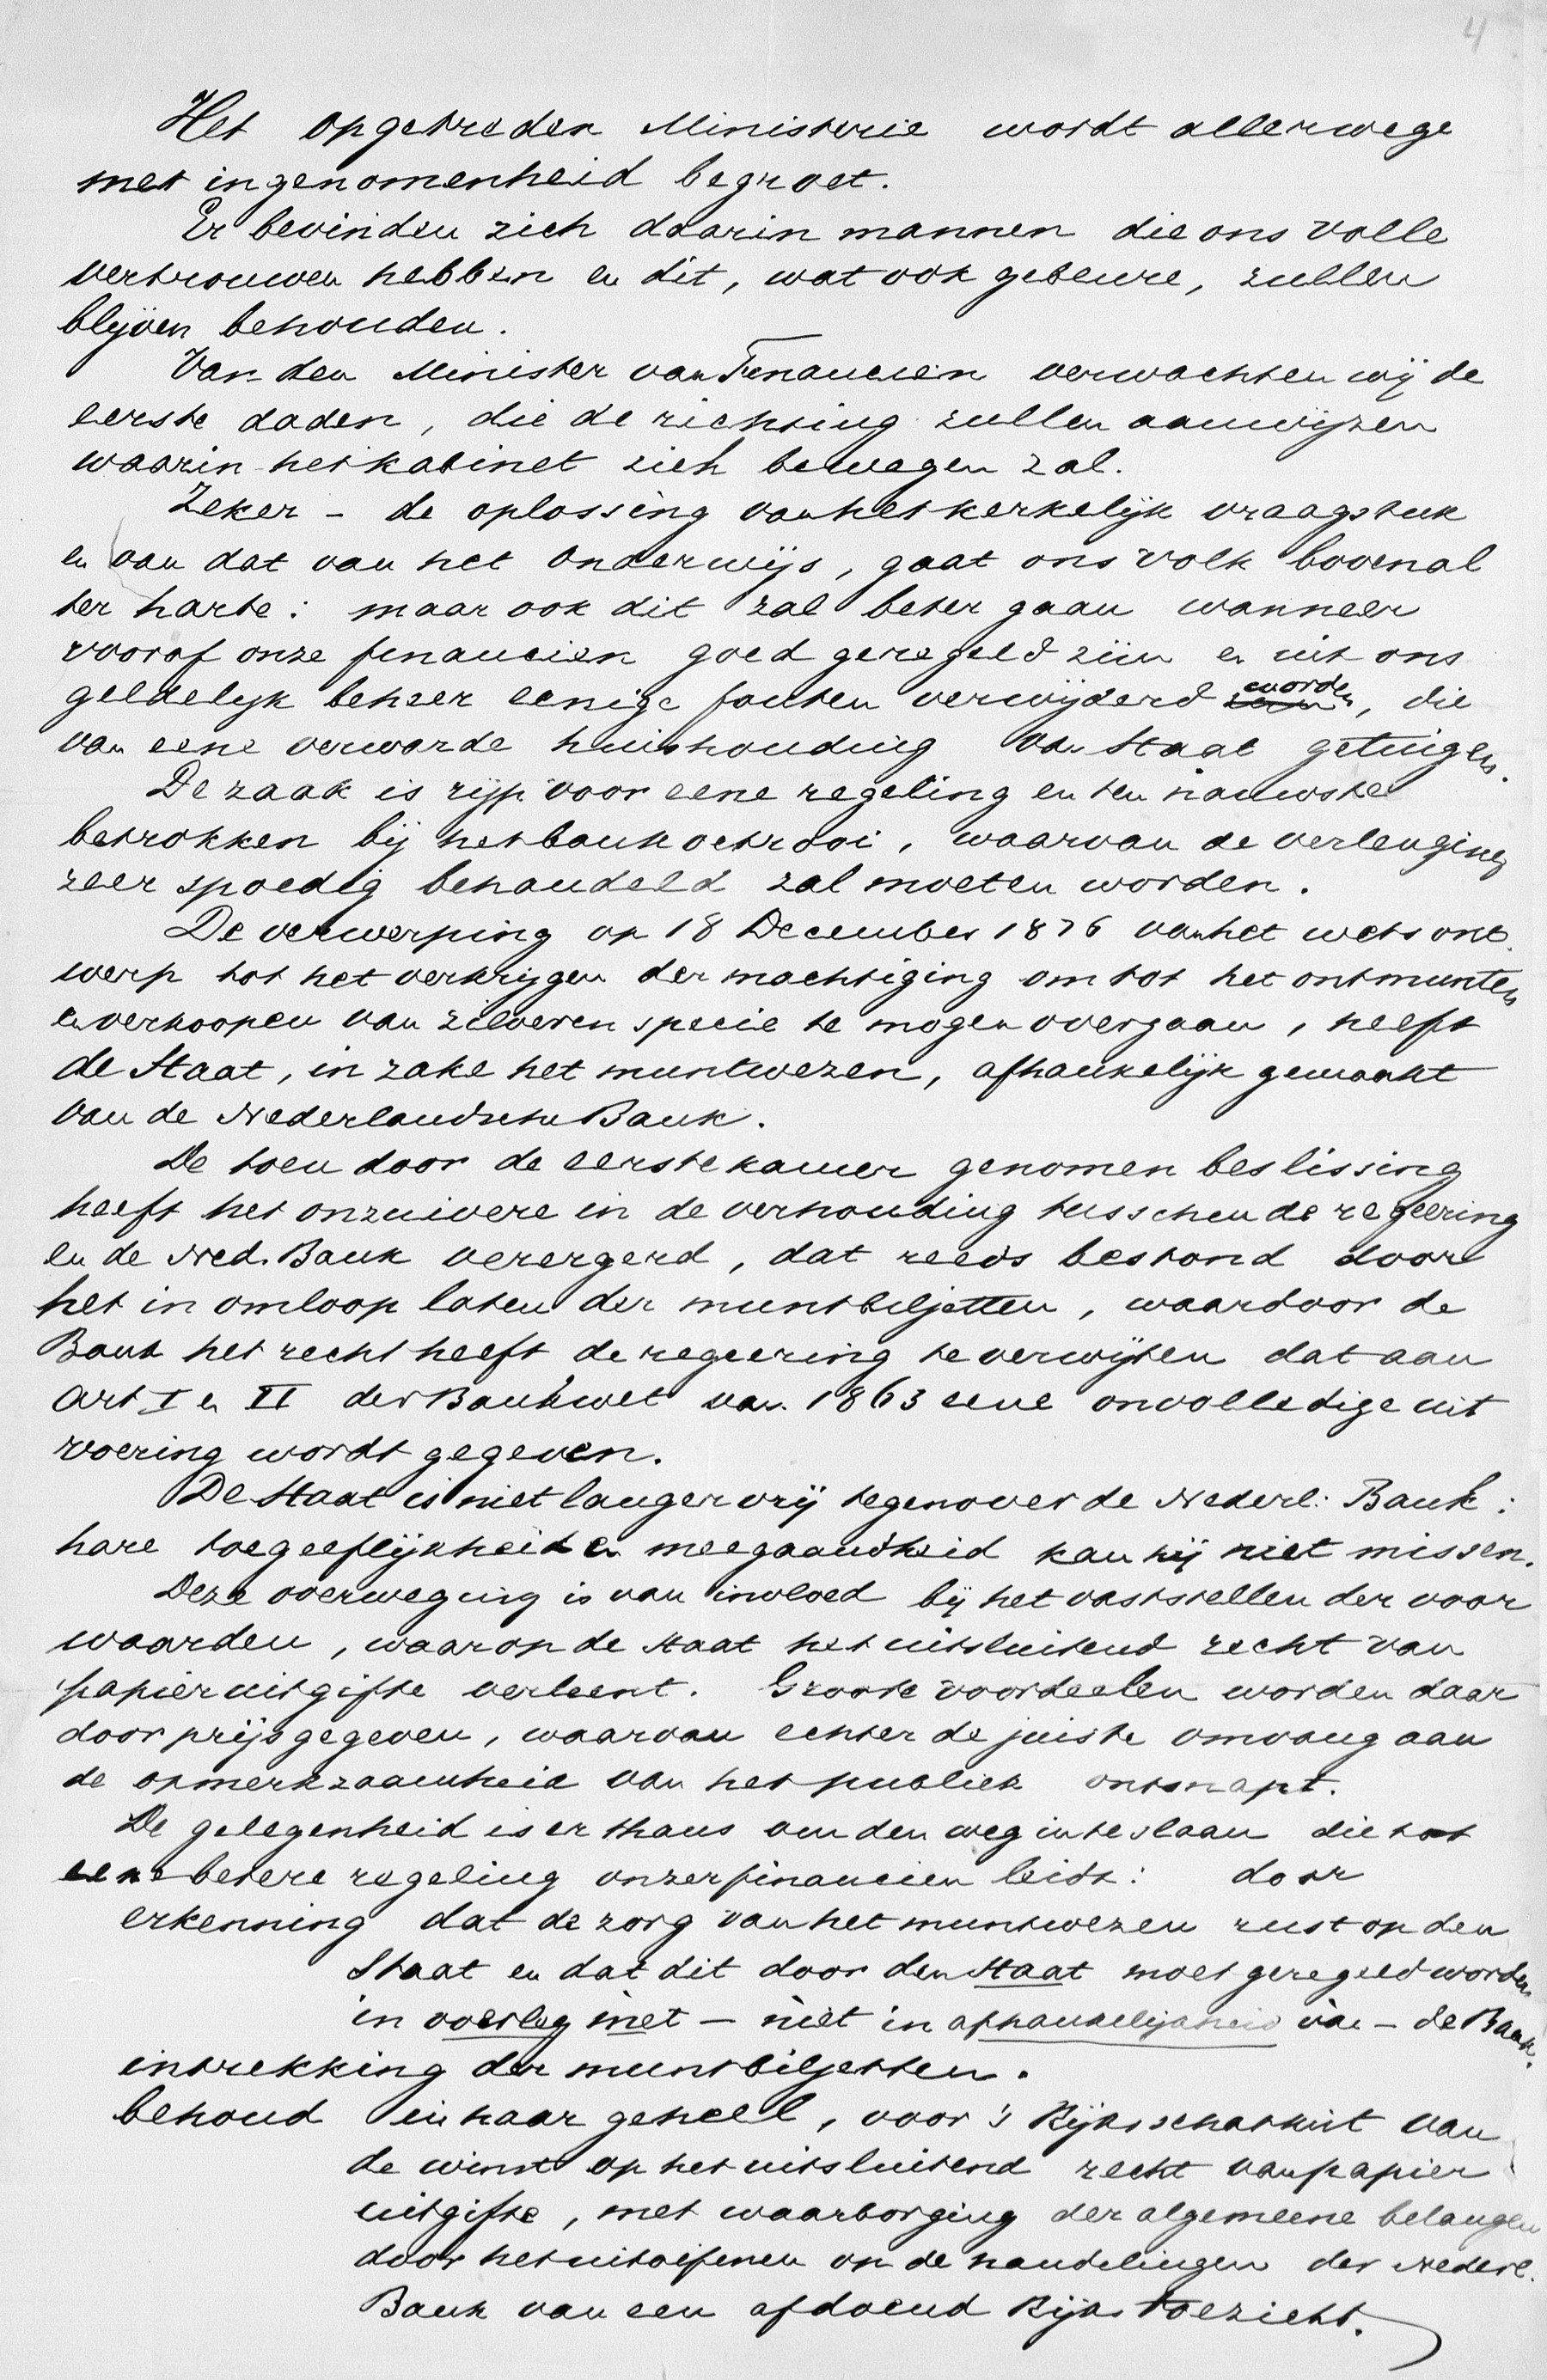 4
Het opgetreden Ministerie wordt allerwege
met ingenomenheid begroet.
Er bevinden zich daarin mannen die ons volle
vertrouwen hebben en dit, wat ook gebeure, zullen
blijven behouden.
Van den Minister van Financiën verwachten wij de
eerste daden, die de richting zullen aanwijzen
waarin het kabinet zich bewegen zal.
Zeker – de oplossing van het kerkelijk vraagstuk
en van dat van het Onderwijs, gaat ons volk bovenal
ter harte: maar ook dit zal beter gaan wanneer
vooraf onze financien goed geregeld zijn en uit ons
geldelijk beheer eenige fouten verwijderd worden, die
van eene verwarde huishouding van Staat getuigen.
De zaak is rijp voor eene regeling en ten nauwste
betrokken bij het bankoctrooi, waarvan de verlenging
zeer spoedig behandeld zal moeten worden.
De verwerping op 18 December 1876 van het wetsont
werp tot het verkrijgen der machtiging om tot het ontmunten
en verkoopen van zilveren specie te mogen overgaan, heeft
de Staat, in zake het muntwezen, afhankelijk gemaakt
van de Nederlandsche Bank.
De toen door de eerste kamer genomen beslissing
heeft het onzuivere in de verhouding tusschen de regeering
en de Ned. Bank verergerd, dat reeds bestond door
het in omloop laten der muntbiljetten, waardoor de
Bank het recht heeft de regeering te verwijten dat aan
Art I en II der Bankwet van 1863 eene onvolledige uit
voering wordt gegeven.
De Staat is niet langer vrij tegenover de Nederl: Bank:
hare toegeeflijkheid en meegaandheid kan hij niet missen.
Deze overweging is van invloed bij het vaststellen der voor
waarden, waarop de staat het uitsluitend recht van
papieruitgifte verleent. Groote voordeelen worden daar
door prijsgegeven, waarvan echter de juiste omvang aan
de opmerkzaamheid van het publiek ontsnapt.
De gelegenheid is er thans om den weg in te slaan die tot
eene betere regeling onzer financien leidt: door
erkenning dat de zorg van het muntwezen rust op den
Staat en dat dit door den Staat moet geregeld worden
in overleg met – niet in afhankelijkheid van – de Bank.
intrekking der muntbiljetten.
behoud in haar geheel, voor 's Rijks schatkist van
de winst op het uitsluitend recht van papier
uitgifte, met waarborging der algemeene belangen
door het uitoefenen op de handelingen der Nederl.
Bank van een afdoend Rijks toezicht.